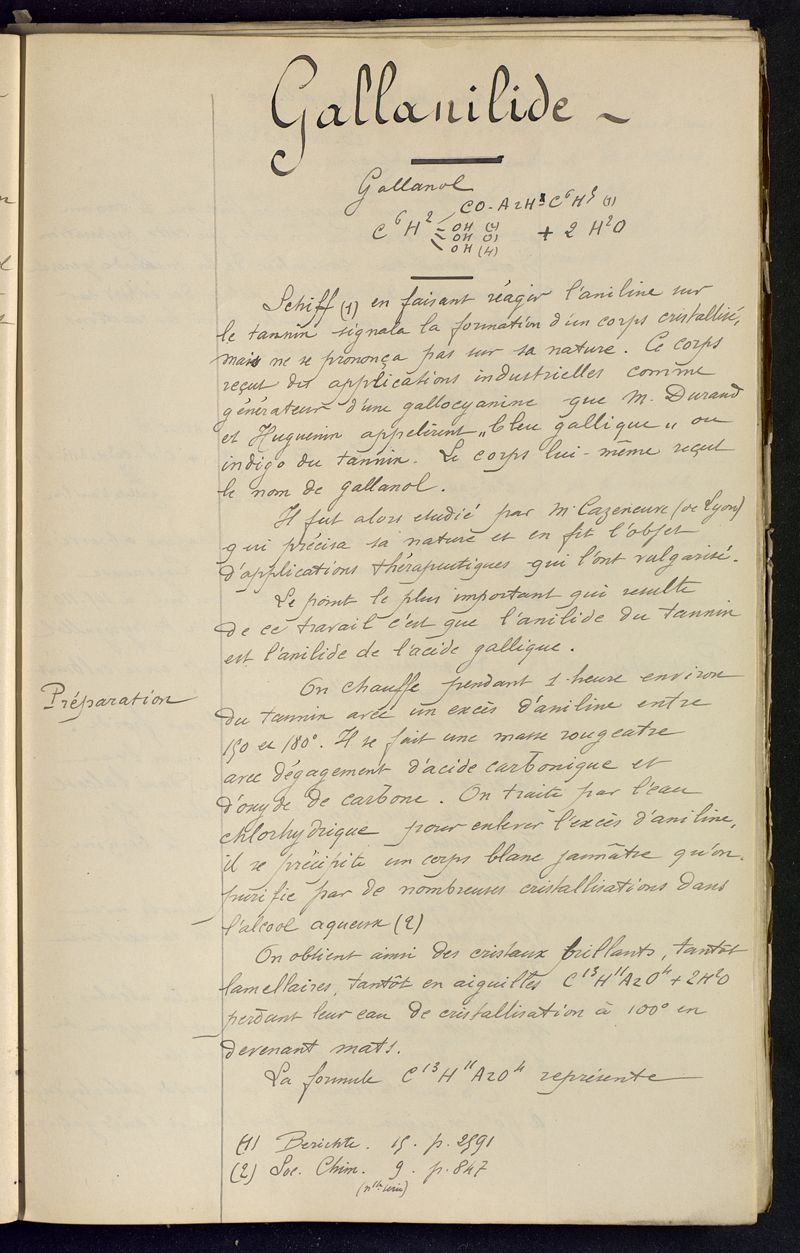 Gallanilide -
Gallanol
CO - AzH - C⁶H⁵ (1)
C⁶H² = OH (4) + 2 H²O
OH (3)
OH (4)
Schiff (1) en faisant réagir l'aniline sur
le tannin signala la formation d'un corps cristallisé,
mais ne se prononça pas sur sa nature. Ce corps
reçut des applications industrielles comme
générateur d'une gallocyanine que M. Durand
et Huguenin appelèrent „bleu gallique„ ou
indigo du tannin. Le corps lui-même reçut
le nom de gallanol.
Il fut alors etudié par Mr Cazeneuve (de Lyon)
qui précisa sa nature et en fit l'objet
d'applications thérapeutiques qui l'ont vulgarisé.
Le point le plus important qui resulte
de ce travail c'est que l'anilide du tannin
est l'anilide de l'acide gallique.
Préparation
On chauffe pendant 1 heure environ
du tannin avec un excès d'aniline entre
150 et 180°. Il se fait une masse rougeatre
avec dégagement d'acide carbonique et
d'oxyde de carbone. On traite par l'eau
chlorhydrique pour enlever l'excès d'aniline,
il se précipite un corps blanc jaunâtre qu'on
purifie par de nombreuses cristallisations dans
l'alcool aqueux (2)
On obtient ainsi des cristaux brillants, tantôt
lamellaires, tantôt en aiguilles C¹³H¹¹AzO⁴ + 2H²O
perdant leur eau de cristallisation à 100° en
devenant mats.
La formule C¹³H¹¹AzO⁴ représente
(1) Berichte. 15. p. 2591
(2) Soc. Chim. 9. p. 847
(nlle série)